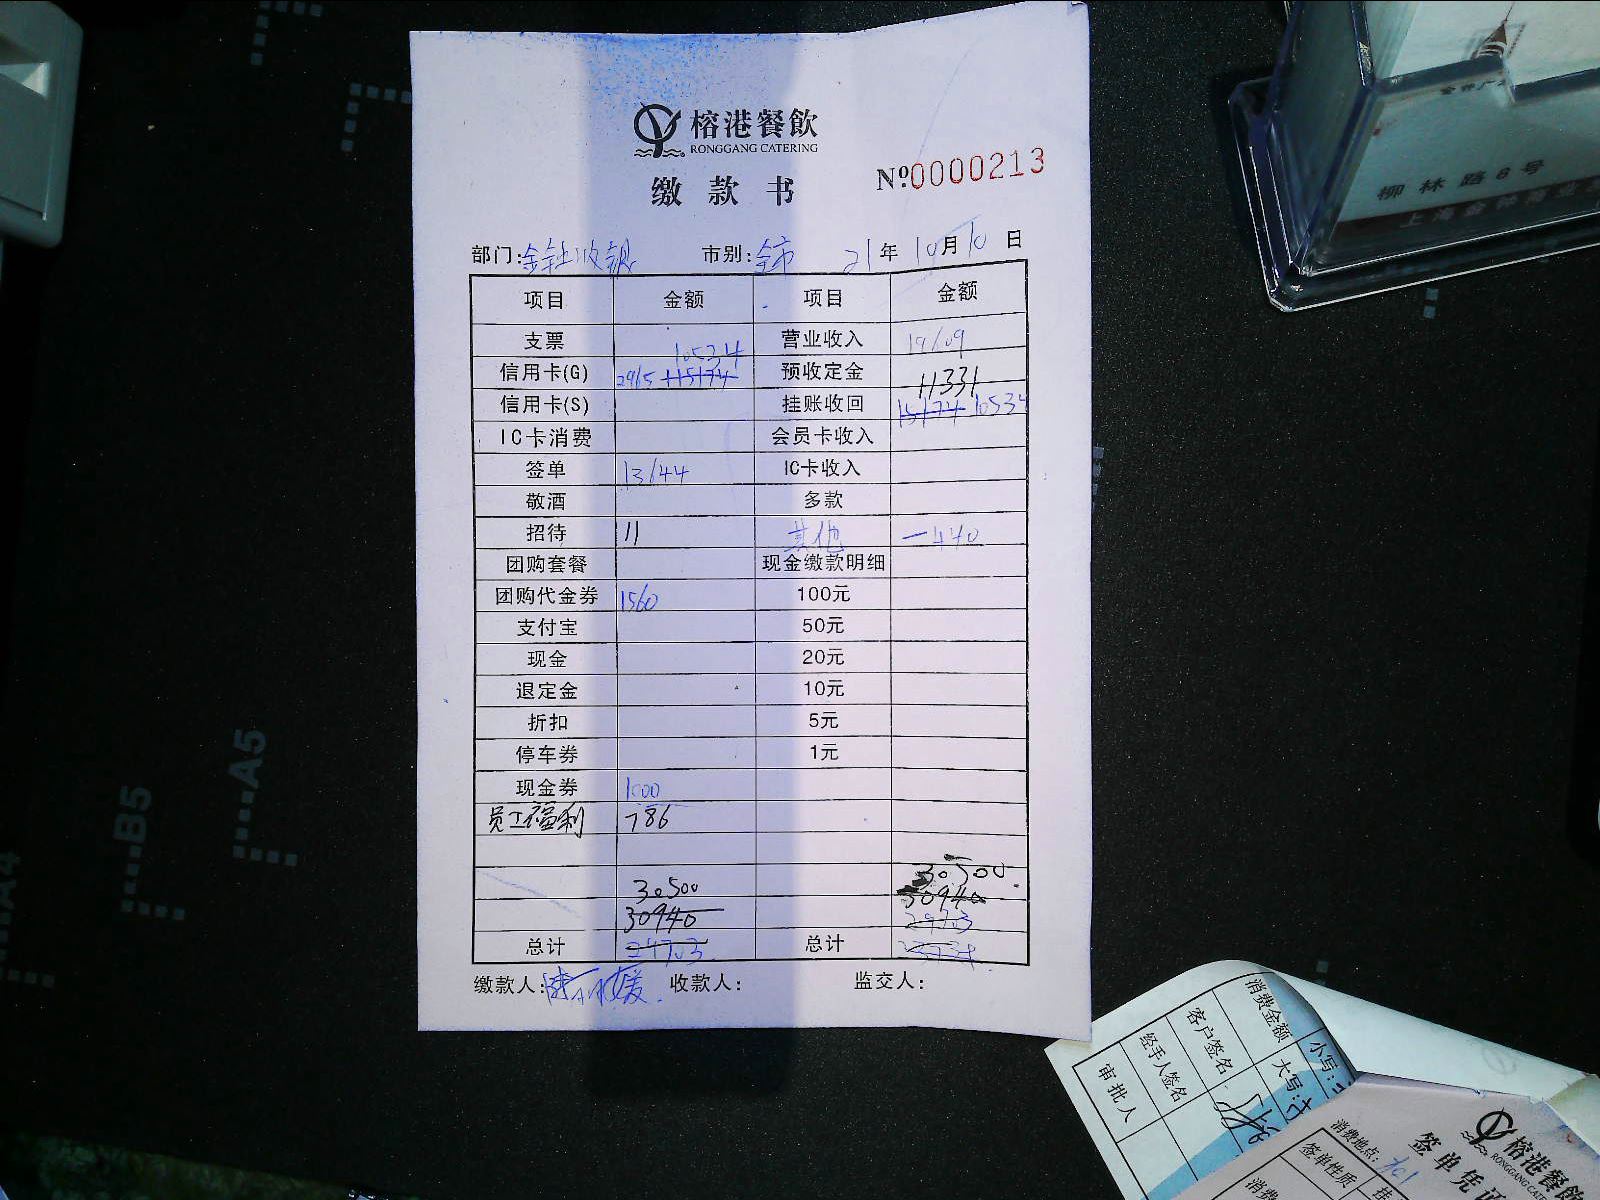 榕港餐飲
RONGGANG CATERING
缴款书
№0000213
部门:金钟收银 市别:全市 21年10月10日
项目 金额 项目 金额
支票 营业收入 19109
10534
信用卡(G) 2965 15174 预收定金 11331
信用卡(S) 挂账收回 15174 10534
IC卡消费 会员卡收入
签单 13144 IC卡收入
敬酒 多款
招待 11 其他 -440
团购套餐 现金缴款明细
团购代金券 1560 100元
支付宝 50元
现金 20元
退定金 10元
折扣 5元
停车券 1元
现金券 1000
员工福利 786
30500 30500
30940 30940
总计 总计
缴款人: 收款人: 监交人:
柳林路6号
消费金额 小写:
大写:
客户签名
经手人签名
审批人
榕港餐飲
RONGGANG CATERING
签单凭
消费地点:
签单性质
消费
A5
B5
A4